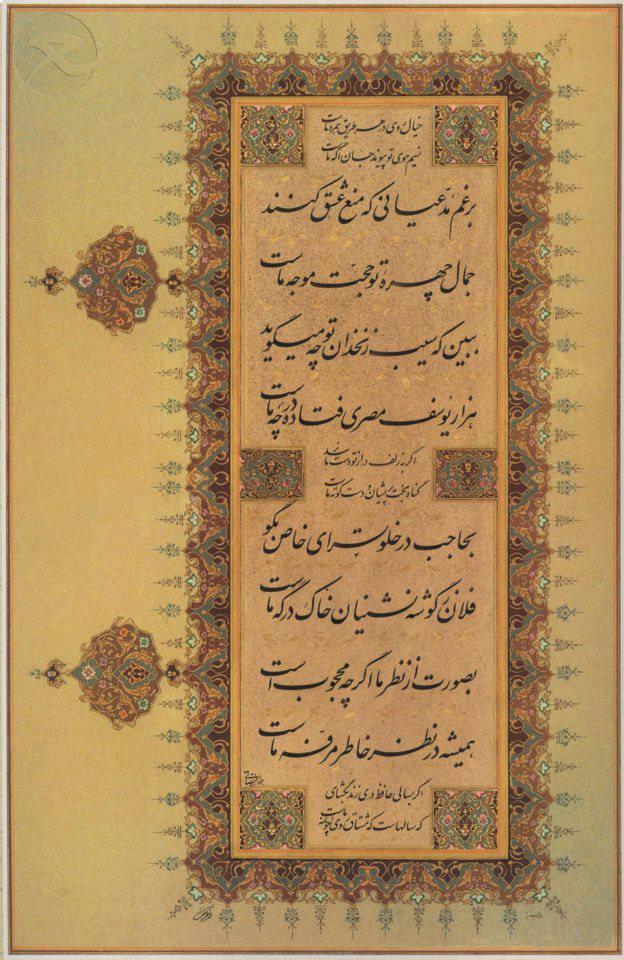 خیال روی تو در هر طریق همره ماست
نسیم موی تو پیوند جان آگه ماست
برغم مدّعیانی که منع عشق کنند
جمال چهرهٔ تو حجّت موجه ماست
ببین که سیب زنخدان تو چه میگوید
هزار یوسف مصری فتاده در چه ماست
اگر به زلف دراز تو دست ما نرسد
گناه بخت پریشان و دست کوته ماست
بحاجب در خلوتسرای خاص بگو
فلان ز گوشه نشینان خاک درگه ماست
بصورت از نظر ما اگرچه محجوب است
همیشه در نظر خاطر مرفّه ماست
اگر بسالی حافظ دری زند بگشای
که سالهاست که مشتاق روی چون مه ماست